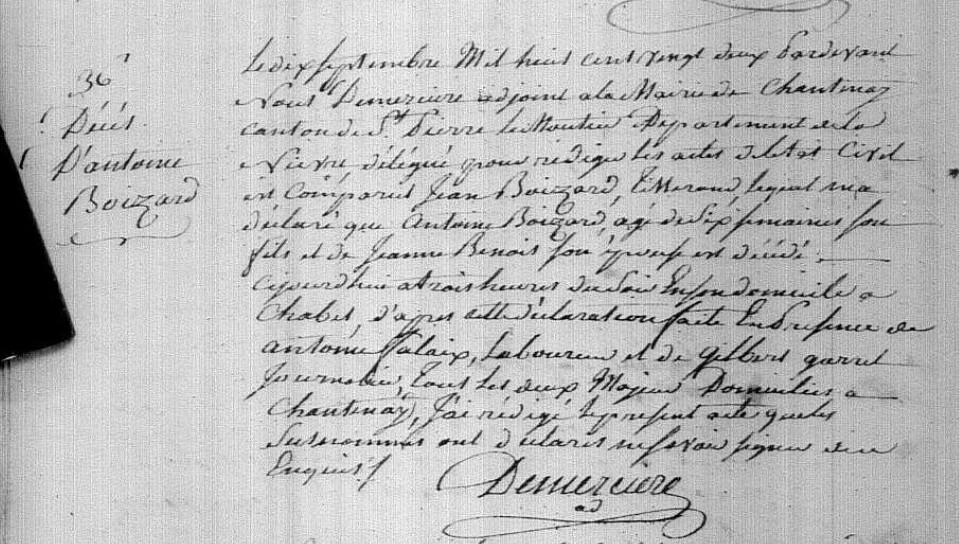 36
Décés
D'antoine
Boizzard
le dix septembre Mil huit cent vingt deux Pardevant
Nous Demerciere adjoint a la Mairie de Chantenay
canton de St. Pierre le Moutier Departement de la
Nievre délégué pour rédiger les actes de letat Civil
est Comparu Jean Boizzard, Tisserand lequel ma
déclaré que Antoine Boizzard, agé de Six semaines son
fils et de Jeanne Benois son épouse est décédé
ajourdhui a trois heures du soir En son domicile a
Chabet, d'apres cette déclaration faite En Presence de
antoine Salaix, Laboureur et de Gilbert garret
Journalier, tous les deux Majeur Domiciliés a
Chantenay, J'ai rédigé le present acte que les
Susnommés ont déclarés ne savoir signer de ce
Enquis
Demerciere
ad